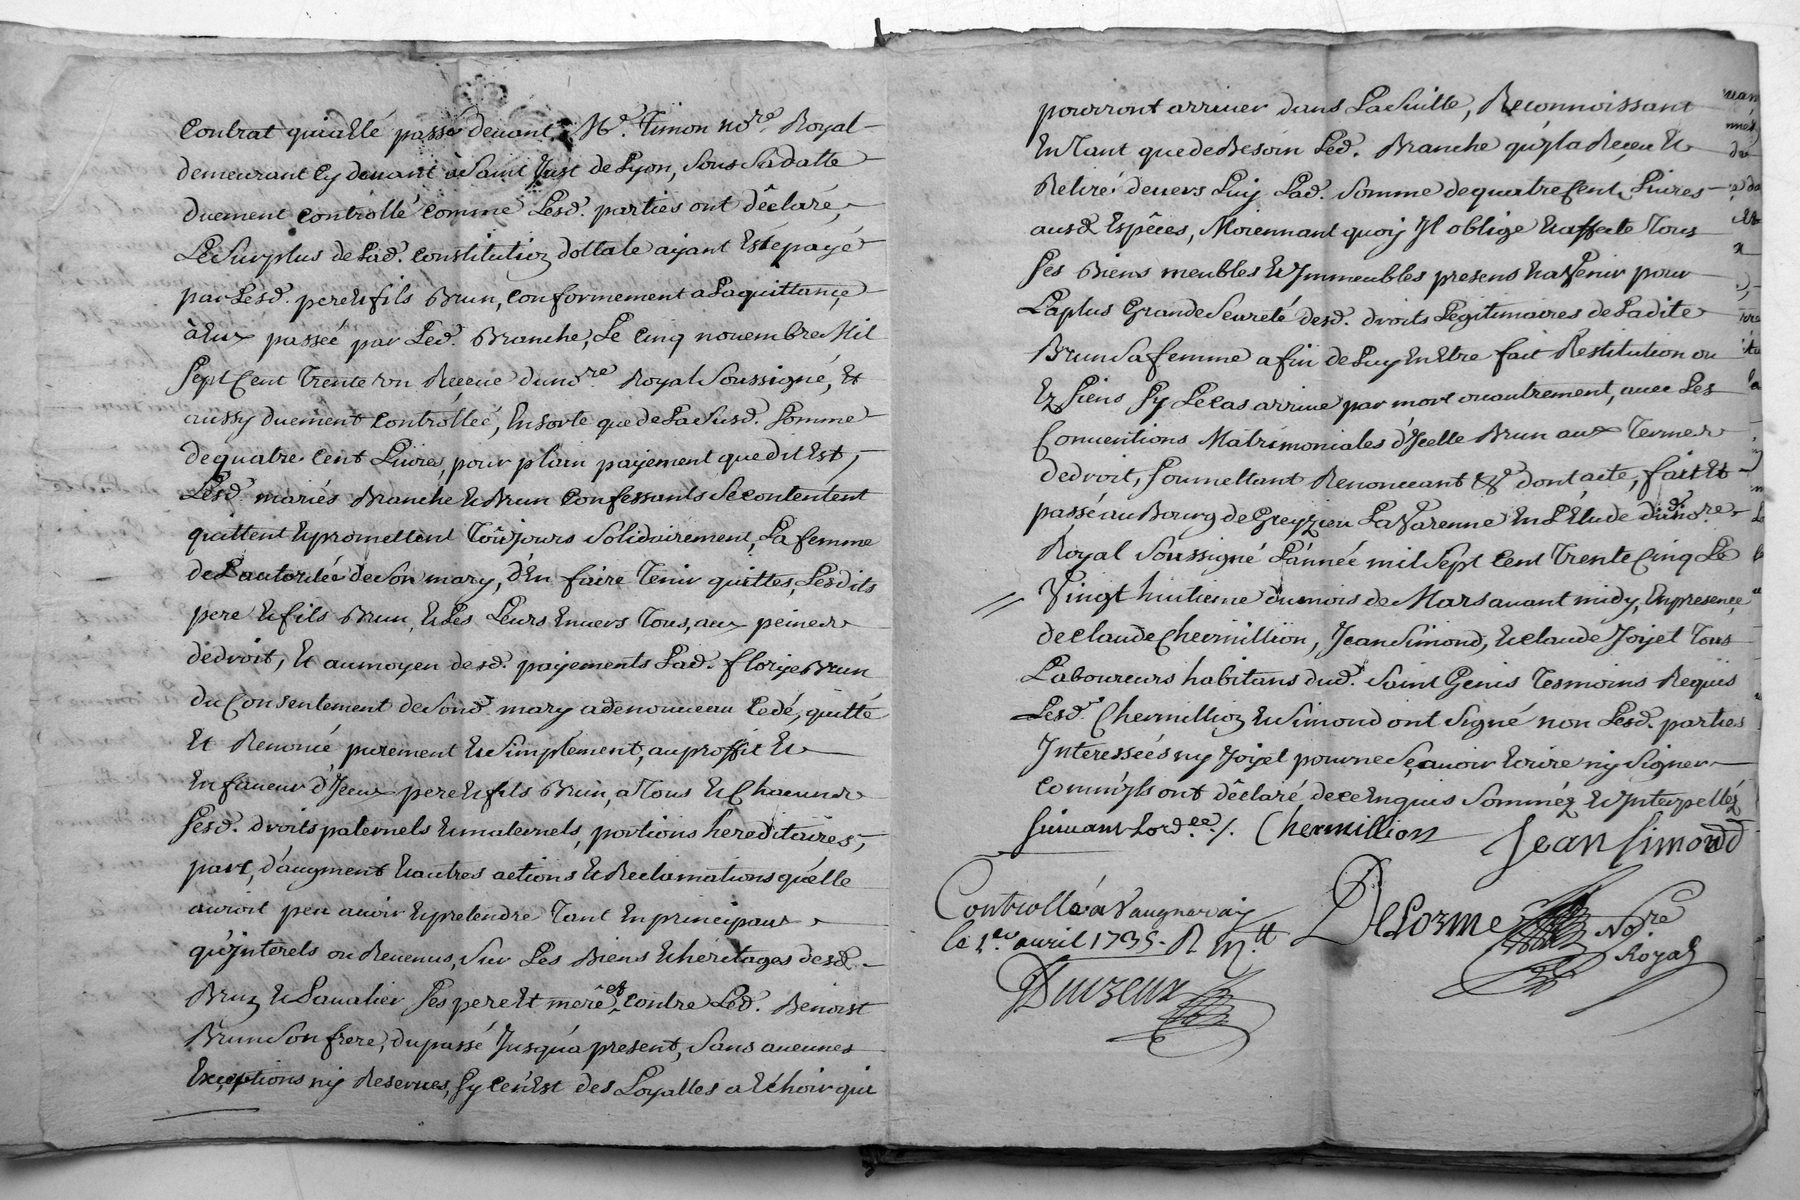 Contrat qui a Eté passé devant Me. Simon nore. Royal
demeurant Cy devant à Saint Just de Lyon, Sous Sa datte
duement Controllé Comme Lesd. parties ont déclaré,
Le Surplus de Lad. Constitution dottale aïant Esté payé
par Lesd. pere Et fils Brun, Conformement a La quittance
à Eux passée par Led. Branche, Le Cinq novembre Mil
Sept Cent Trente un Receue dud nore. Royal Soussigné, Et
aussy duement Controllée, En sorte que de La Susd. Somme
de quatre Cent Livres, pour plain payement que dit Est,
Lesd. mariés Branche Et Brun Confessants Se contentent
quittent Et promettent Toûjours Solidairement, La femme
de L'autorité de Son mary, d'En faire Tenir quittes, Lesdits
pere Et fils Brun, Et Les Leurs Envers Tous, aux peines
de droit, Et au moyen desd. payements Lad. florye Brun
du Consentement de Sond. mary a de nouveau Cedé, quitté
Et Renoncé purement Et Simplement, au proffit Et
En faveur d'Yceux pere Et fils Brun, a Tous Et Chacuns
Sesd. droits paternels Et maternels, portions hereditaires,
part, d'augment Et autres actions Et Reclamations qu'elle
auroit peu avoir Et pretendre Tant En principaux
qu'Interets ou Revenus, Sur Les Biens Et heritages desd.
Brun Et Lavalier Ses pere Et mere, et Contre Led. Benoist
Brun Son frere, du passé Jusqu'a present, Sans aucunes
Exceptions ny Reserves, Sy Ce n'Est des Loyalles a Echoir qui
pourront arriver dans La Suitte, Reconnoissant
En Tant que de Besoin Led. Branche qu'yl a Reçeu Et
Retiré devers Luy Lad. Somme de quatre Cent Livres
ausd. Espêces, Moiennant quoy Yl oblige Et affecte Tous
Ses Biens meubles Et Immeubles presens Et a Venir pour
La plus Grande Seureté desd. droits Legitimaires de Ladite
Brun Sa femme a fin de Luy En Etre fait Restitution ou
Ez Siens Sy Le cas arrive par mort ou autrement, avec Les
Conventions Matrimoniales d'Ycelle Brun aux Termes
de droit, Soumettant Renonceant &a dont acte, fait Et
passé au Bourg de Greyzieu La Varenne En L'Etude dud nore.
Royal Soussigné L'année mil Sept Cent Trente Cinq Le
Vingt huitieme du mois de Mars avant midy, En presence
de Claude Chermillion, Jean Simond, Et Claude Joyet Tous
Laboureurs habitans dud. Saint Genis Tesmoins Requis
Lesd. Chermillion Et Simond ont Signé non Lesd. parties
Interessées ny Joyet pour ne Sçavoir Ecrire ny Signer
Comm'yls ont déclaré, de ce Enquis Sommés Et Interpellés
Suivant Lordce./. Chermillion Jean Simond
Controllé a Vaugneray Delorme Nore
le 1er avril 1735. R Royal